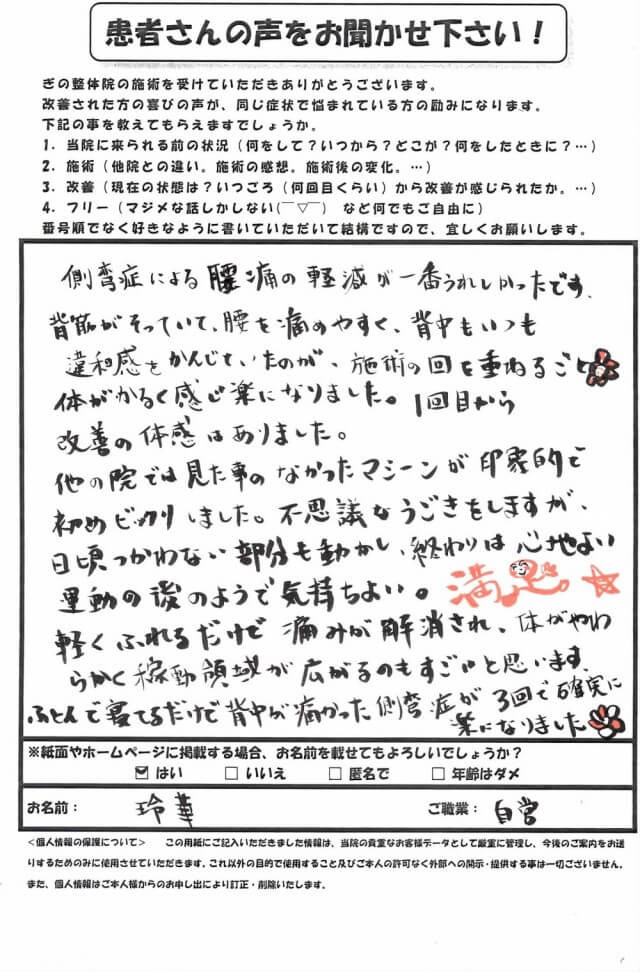 患者さんの声をお聞かせ下さい！
ぎの整体院の施術を受けていただきありがとうございます。
改善された方の喜びの声が、同じ症状で悩まれている方の励みになります。
下記の事を教えてもらえますでしょうか。
1．当院に来られる前の状況（何をして？いつから？どこが？何をしたときに？…）
2．施術（他院との違い。施術の感想。施術後の変化。…）
3．改善（現在の状態は？いつごろ（何回目くらい）から改善が感じられたか。…）
4．フリー（マジメな話しかしない(￣▽￣)　など何でもご自由に）
番号順でなく好きなように書いていただいて結構ですので、宜しくお願いします。
側弯症による腰痛の軽減が一番うれしかったです。
背筋がそっていて、腰を痛めやすく、背中もいつも
違和感をかんじていたのが、施術の回を重ねるごと
体がかるく感じ楽になりました。1回目から
改善の体感はありました。
他の院では見た事のなかったマシーンが印象的で
初めビックリしました。不思議なうごきをしますが、
日頃つかわない部分も動かし、終わりは心地よい
運動の後のようで気持ちよい。満足。
軽くふれるだけで痛みが解消され、体がやわ
らかく稼動領域が広がるのもすごいと思います。
ふとんで寝てるだけで背中が痛かった側弯症が3回で確実に
楽になりました
※紙面やホームページに掲載する場合、お名前を載せてもよろしいでしょうか？
はい　いいえ　匿名で　年齢はダメ
お名前：　玲華　ご職業：　自営
＜個人情報の保護について＞　この用紙にご記入いただきました情報は、当院の貴重なお客様データとして厳重に管理し、今後のご案内をお送
りするためのみに使用させていただきます。これ以外の目的で使用すること及びご本人の許可なく外部への開示・提供する事は一切ございません。
また、個人情報はご本人様からのお申し出により訂正・削除いたします。